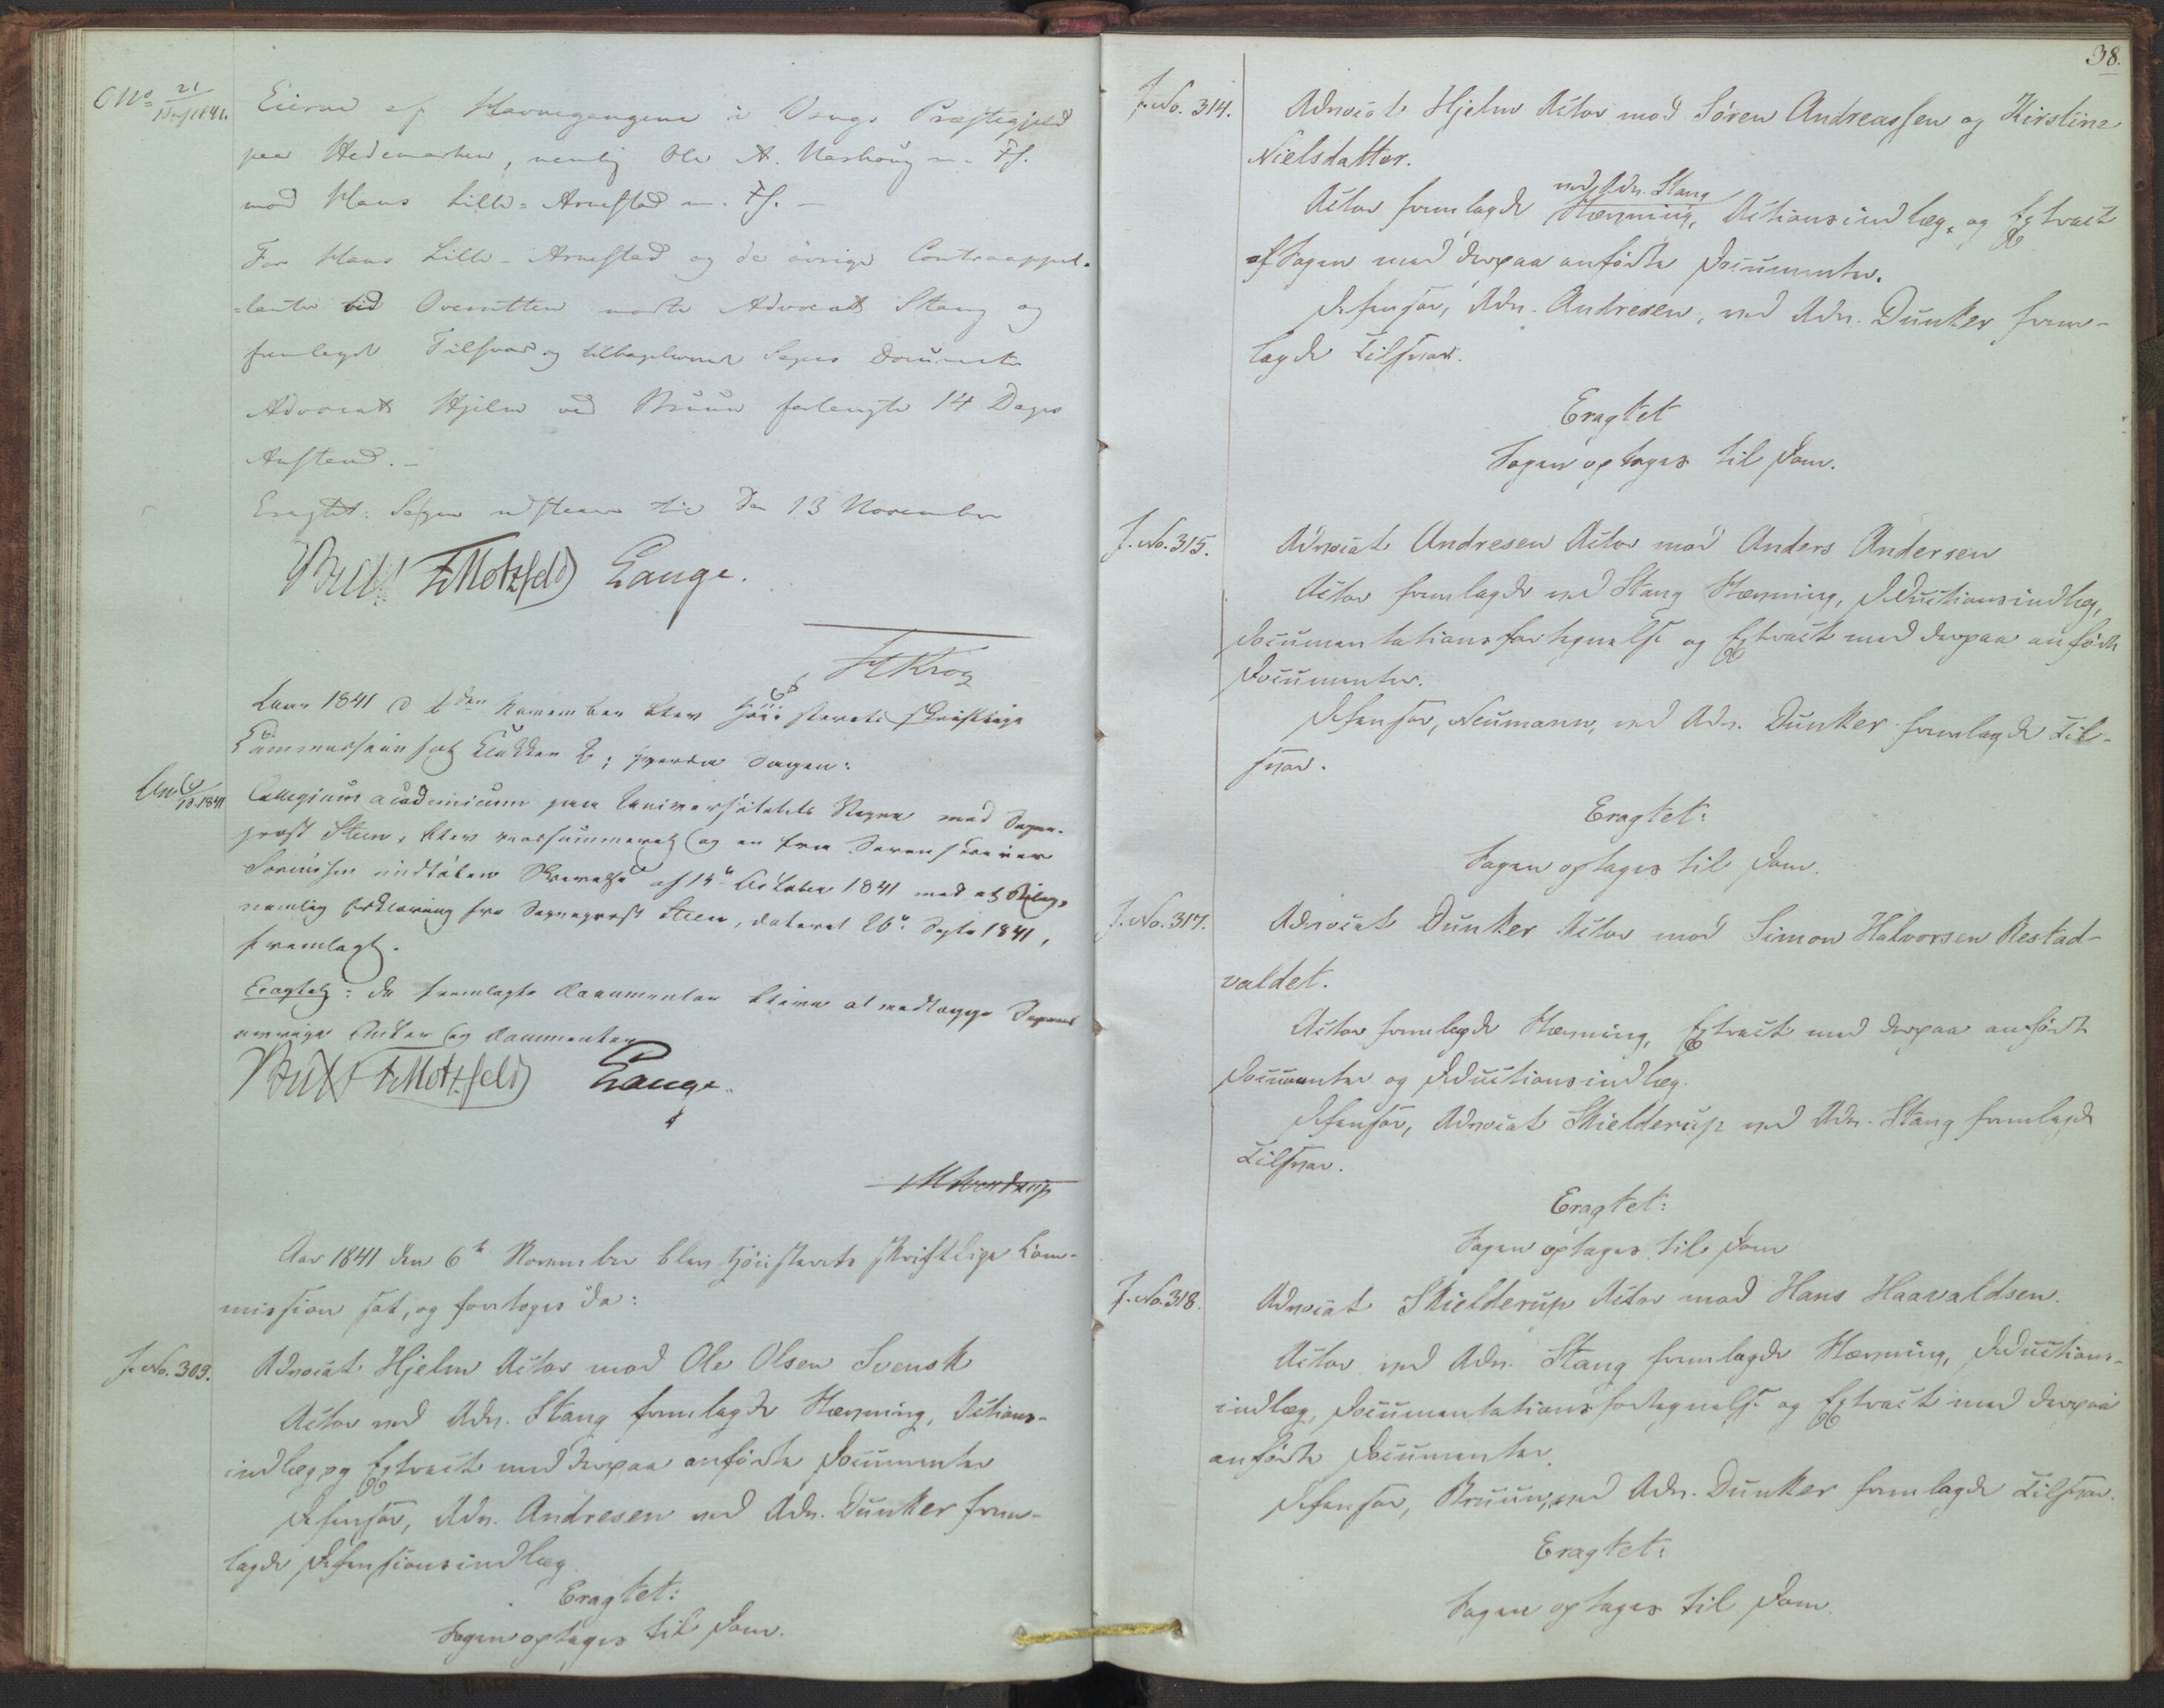 O No 21/1841.
Eierne af Havnegangene i Vangs Præstegjeld
paa Hedemarken, nemlig Ole A. m. Fl.
mod Hans Lille-Arnestad m. Fl. –
For Hans Lille-Arnestad og de övrige Contraappel-
lanter ved Overretten mødte Advocat Stang og
fremlagde Tilsvar og tilbageleverede Sagens Documenter
Advocat Hjelm ved Bruun forlangte 14 Dages
Anstand. –
Eragtet: Sagen udstaaer til den 13 November
Bull FMotzfeldt Lange.
HKrog
Aar 1841 d 6den November blev Höiesterets skriftlige
Commission sat Klokken 6; hvorda Sagen:
/10.1841
Collegium academicum paa Universitetets Vegne mod Sogne-
præst Steen, blev og en fra Sorenskriver
Sörenssen indløben Skrivelse af 15de October 1841 med et Bilag,
nemlig Erklæring fra Sognepræst Steen, dateret 26de Septr 1841,
fremlagt.
Eragtet: De fremlagte Documenter blive at vedlægge Sagens
øvrige Akter og Documenter
Bull FMotzfeldt Lange.
Aar 1841 den 6te November blev Höiesterets skriftlige Com-
mission sat, og foretoges da:
J. No. 309.
Advocat Hjelm Actor mod Ole Olsen Svensk
Actor ved Adv. Stang fremlagde Stævning, Actions-
indlæg og Extract med derpaa anförte Documenter
Defensor, Adv. Andresen ved Adv. Dunker frem-
lagde Defensionsindlæg
Eragtet:
Sagen optages til Dom.
38.
J. No. 314.
Advocat Hjelm Actor mod Sören Andreassen og Kirstine
Nielsdatter.
ved Adv. Stang
Actor fremlagde Stævning, Actionsindlæg, og Extract
af Sagen med derpaa anförte Documenter.
Defensor, Adv. Andresen, ved Adv. Dunker frem-
lagde Tilsvar.
Eragtet
Sagen optages til Dom.
J. No. 315.
Advocat Andresen Actor mod Anders Andersen
Actor fremlagde ved Stang Stævning, Deductionsindlæg,
Documentationsfortegnelse og Extract med derpaa anförte
Documenter.
Defensor, Neumann, ved Adv. Dunker fremlagde Til-
svar.
Eragtet:
Sagen optages til Dom.
J. No. 317.
Advocat Dunker Actor mod Simon Halvorsen Restad-
valdet.
Actor fremlagde Stævning, Extract med derpaa anförte
Documenter og Deductionsindlæg.
Defensor, Advocat Skielderup ved Adv. Stang fremlagde
Tilsvar.
Eragtet:
Sagen optages til Dom
J. No. 318.
Advocat Skielderup Actor mod Hans Haavaldsen.
Actor ved Adv. Stang fremlagde Stævning, Deductions-
indlæg, Documentationsfortegnelse og Extract med derpaa
anförte Documenter.
Defensor, Bruun, ved Adv. Dunker fremlagde Tilsvar.
Eragtet:
Sagen optages til Dom.